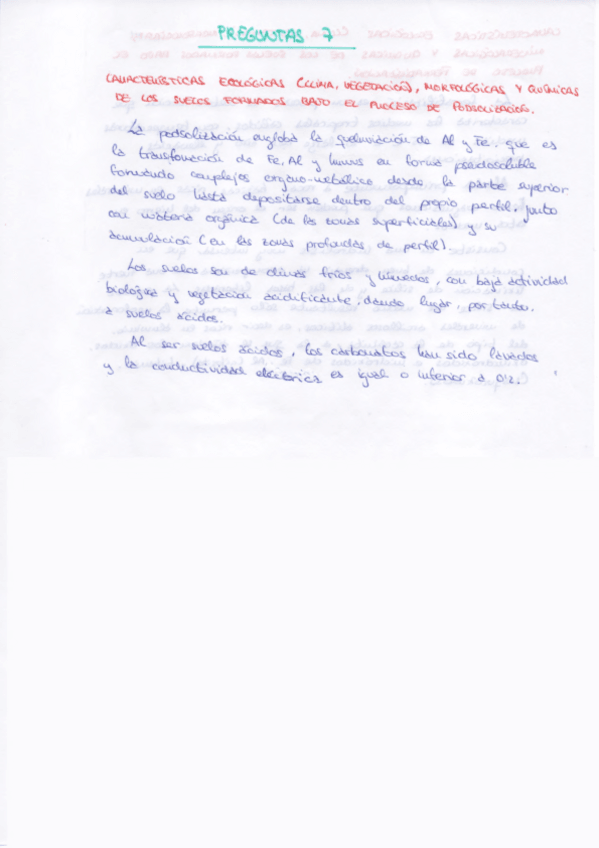 PREGUNTAS 7
CARACTERÍSTICAS ECOLÓGICAS (CLIMA, VEGETACIÓN), MORFOLÓGICAS Y QUÍMICAS
DE LOS SUELOS FORMADOS BAJO EL PROCESO DE PODSOLIZACIÓN.
La podsolización engloba la queluviación de Al y Fe, que es
la transformación de Fe, Al y humus en forma pseudosoluble
formando complejos organo-metálico desde la parte superior
del suelo hasta depositarse dentro del propio perfil, junto
con materia orgánica (de las zonas superficiales) y su
acumulación (en las zonas profundas de perfil).
Los suelos son de climas fríos y húmedos, con baja actividad
biológica y vegetación acidificante, dando lugar, por tanto,
a suelos ácidos.
Al ser suelos ácidos, los carbonatos han sido lavados
y la conductividad eléctrica es igual o inferior a 0'2.